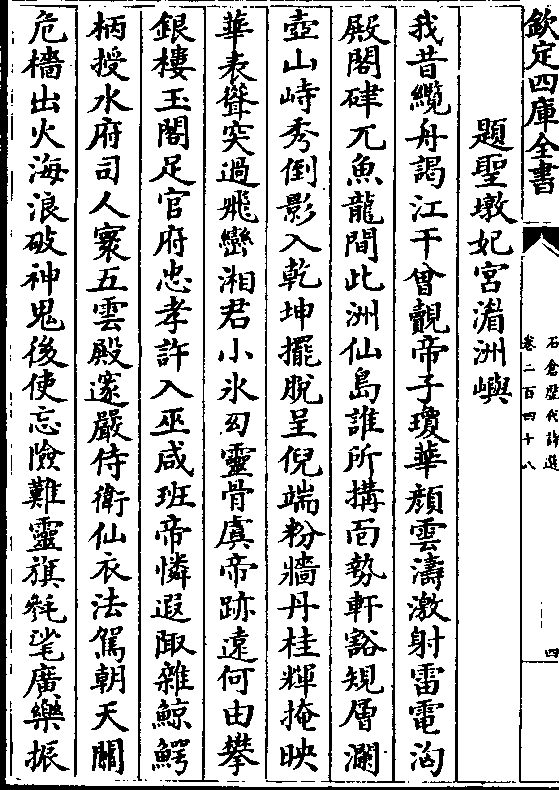 欽定四庫全書
石倉歴代詩選
卷二百四十八
四
題聖墩妃宮湄洲嶼
我昔纜舟謁江干曾觀帝子瓊華顔雲濤激射雷電洶
殿閣硉兀魚龍間此洲仙島誰所搆面勢軒豁規層瀾
壺山峙秀倒影入乾坤擺脱呈倪端粉牆丹桂輝掩映
華表聳突過飛巒湘君小水幻靈骨虞帝跡遠何由攀
銀樓玉閣足官府忠孝許入巫咸班帝憐遐陬雜鯨鰐
柄授水府司人寰五雲殿邃嚴侍衛仙衣法駕朝天關
危檣出火海浪破神鬼後使忘險難靈旗毿毟廣樂振